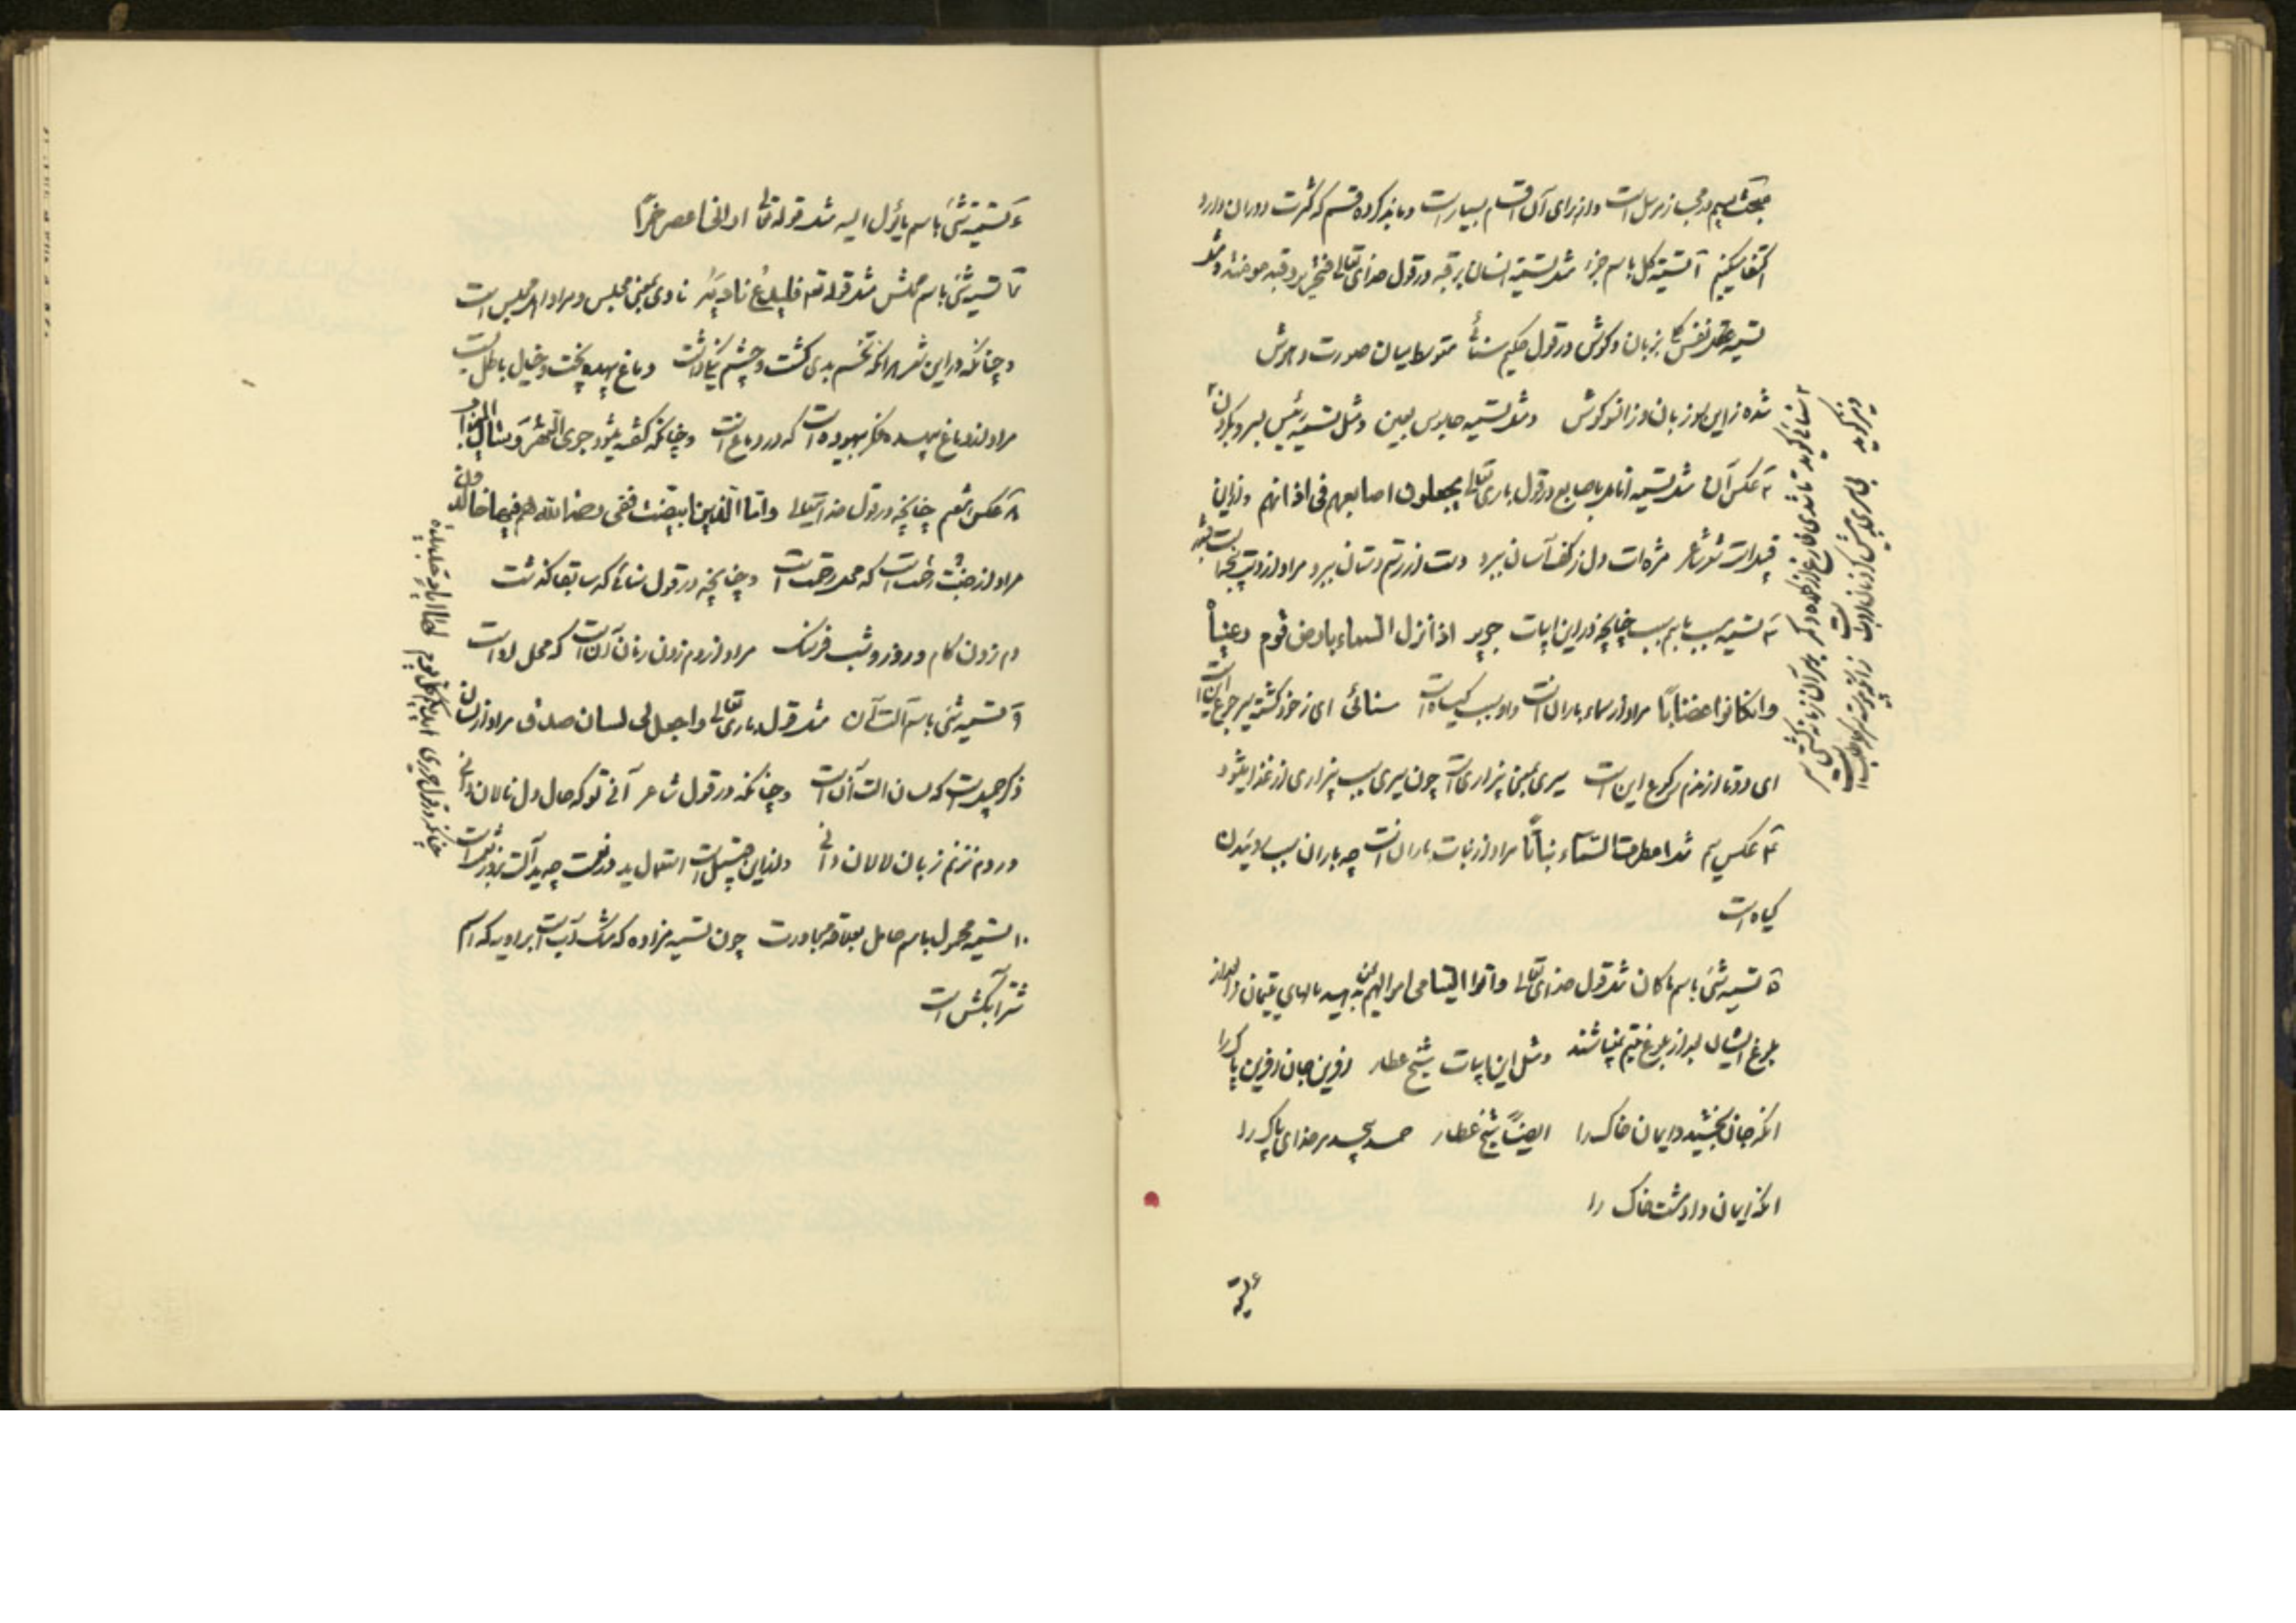 مبحث سیم در مجاز مرسل است و از برای آن اقسام بسیار است و ما بذکر ده قسم که کثرت دوران دارد
اکتفا میکنیم ۱ تسمیه کل باسم جزء مثل تسمیه انسان برقبه در قول خدای تعالی فتحریر رقبة مومنة و مثل
تسمیه بزبان و گوش در قول حکیم سنائی متوسط میان صورت و هوش
شده زاین سو زبان وزانسو گوش و مثل تسمیه جاسوس بعین و مثل تسمیه رئیس بسر و بگردن
۲ عکس آن مثل تسمیه انامل باصابع در قول باری تعالی یجعلون اصابعهم فی اذانهم و از این
قبیل است شعر شاعر مژه‌ات دل ز کف آسان ببرد دست از رستم دستان ببرد مراد از دست
۳ تسمیه مسبب باسم سبب چنانچه در این ابیات جریر اذا نزل السماء بارض قوم رعیناه
وان کانوا غضابا مراد از سماء باران است و او سبب گیاه است سنائی ای ز خود گشته سیر جوع این است
ای دوتا از ندم رکوع این است سیری بمعنی بیزاری است چون سیری سبب بیزاری از غذا میشود
۴ عکس سیم مثل امطرت السماء نباتا مراد از نبات باران است چه باران سبب روئیدن
گیاه است
۵ تسمیه شئ باسم ما کان مثل قول خدای تعالی و آتوا الیتامی اموالهم یعنی بدهید مالهای یتیمان را بعد از
بلوغ ایشان بعد از بلوغ یتیم نمیباشند و مثل این ابیات شیخ عطار آفرین جان آفرین پاک را
انکه جان بخشید و ایمان خاک را ایضا شیخ عطار حمد بیحد مر خدای پاک را
انکه ایمان داد مشت خاک را
سنائی گوید تا شدی فارغ از
و نیز گوید
۶ تسمیه شئ باسم ما یؤل الیه مثل قوله تعالی ارانی اعصر خمرا
۷ تسمیه شئ باسم محلش مثل قوله تعالی فلیدع نادیه نادی بمعنی مجلس و مراد اهل مجلس است
و چنانکه در این شعر هر انکه تخم بدی کشت و چشم نیکی داشت دماغ بیهده پخت و خیال باطل بست
مراد از دماغ بیهده فکر بیهوده است که در دماغ است و چنانکه گفته میشود جری النهر و سال المیزاب
۸ عکس هفتم چنانچه در قول خدایتعالی واما الذین ابیضت ففی رحمة الله هم فیها خالدون
مراد از رحمت جنت است که محل رحمت است و چنانچه در قول سنائی که سابقا گذشت
دم زدن کام و روز و شب فرسنگ مراد از دم زدن زمان آن است که محل او است
۹ تسمیه شئ باسم آلت آن مثل قول باری تعالی واجعل لی لسان صدق مراد از لسان
ذکر جمیل است که لسان الت آن است و چنانکه در قول شاعر آنی تو که حال دل نالان دانی
ور دم نزنم زبان لالان دانی و از این قبیل است استعمال ید در نعمت چه ید آلت
۱۰ تسمیه محمول باسم حامل بعلاقه مجاورت چون تسمیه مزاده که مشک آب است براویه که اسم
شتر آبکش است